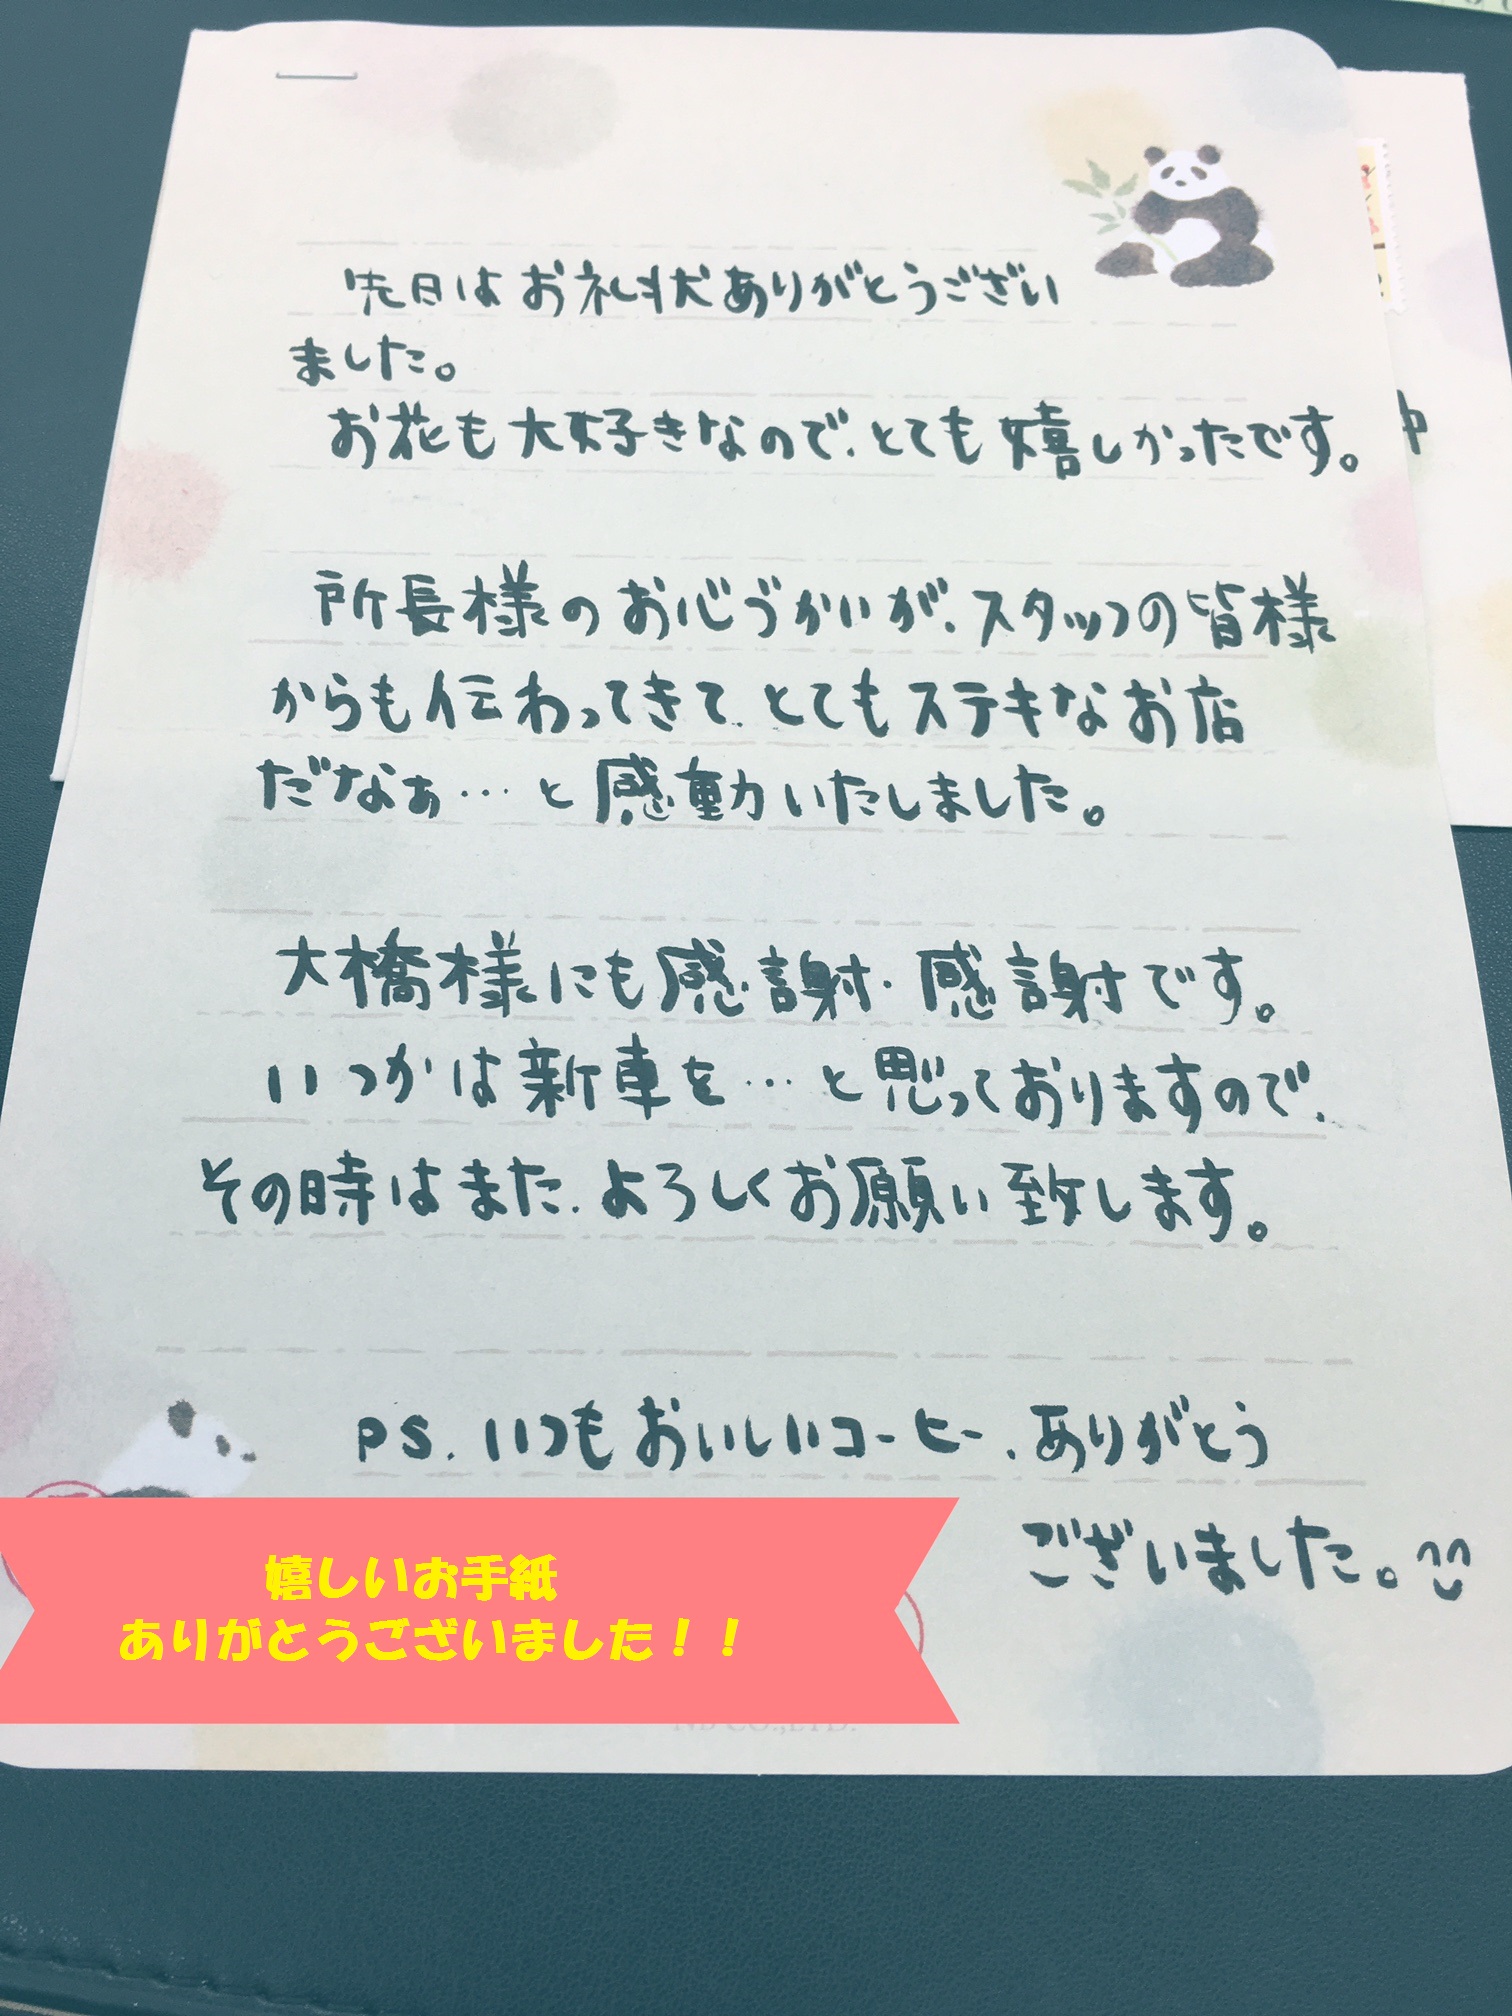 先日はお礼状ありがとうござい
ました。
お花も大好きなので、とても嬉しかったです。
所長様のお心づかいが、スタッフの皆様
からも伝わってきて、とてもステキなお店
だなぁ…と感動いたしました。
大橋様にも感謝・感謝です。
いつかは新車を…と思っておりますので、
その時はまた、よろしくお願い致します。
PS. いつもおいしいコーヒー、ありがとう
ございました。
嬉しいお手紙
ありがとうございました！！